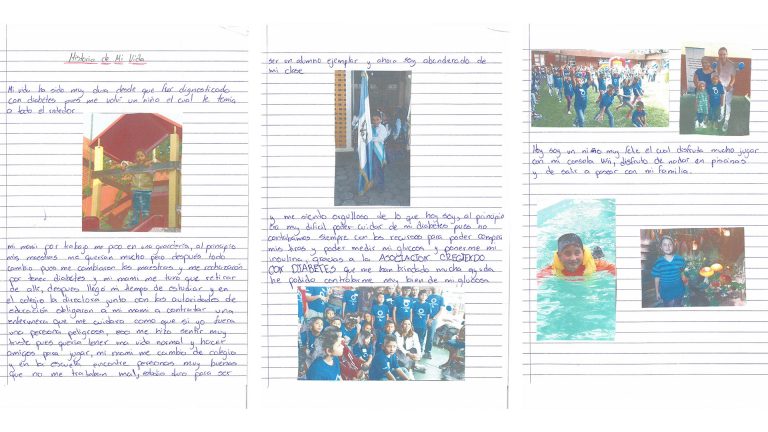 Historia de Mi Vida
Mi vida ha sido muy dura desde que fui diagnosticado
con diabetes pues me volvi un niño el cual le temia
a todo el rededor.
mi mami por trabajo me puso en una guarderia, al principio
mis maestras me querian mucho pero después todo
cambio pues me cambiaron las maestras y me rechazaron
por tener diabetes y mi mami me tuvo que retirar
de alli, despues llego mi tiempo de estudiar y en
el colegio la directora junto con las autoridades de
educación obligaron a mi mami a contratar una
enfermera que me cuidara como que si yo fuera
una persona peligrosa, eso me hizo sentir muy
triste pues queria tener una vida normal y hacer
amigos para jugar, mi mami me cambio de colegio
y en la escuela encontre personas muy buenas
que no me trataban mal, estudio duro para ser
ser un alumno ejemplar y ahora soy abanderado de
mi clase
y me siento orgulloso de lo que hoy soy, al principio
era muy dificil poder cuidar de mi diabetes pues no
contabamos siempre con los recursos para poder comprar
mis tiras y poder medir mi glucosa y ponerme mi
insulina, gracias a la ASOCIACION CRECIENDO
CON DIABETES que me han brindado mucha ayuda
he podido controlarme muy bien de mi glucosa
Hoy soy un niño muy feliz el cual disfruta mucho jugar
con mi consola Wii, disfruto de nadar en piscinas
y de salir a pasear con mi familia.